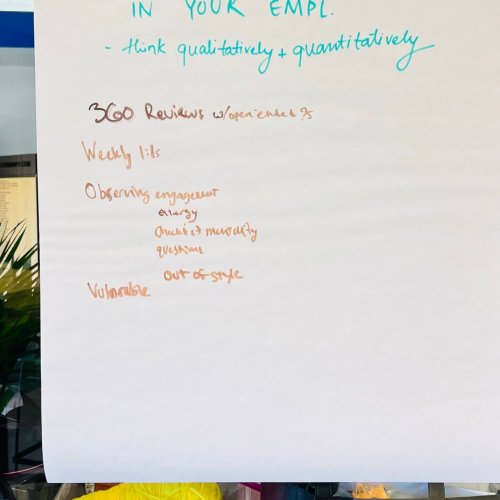 IN YOUR EMPL.
- think qualitatively + quantitatively
360 Reviews w/open ended ?s
Weekly 1:1s
Observing engagement
energy
questions
out of style
Vulnerable